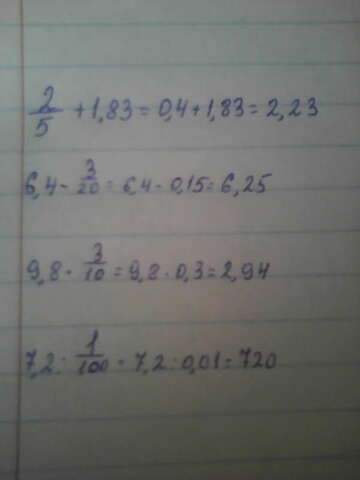 2/5 + 1,83 = 0,4 + 1,83 = 2,23
6,4 - 3/20 = 6,4 - 0,15 = 6,25
9,8 · 3/10 = 9,8 · 0,3 = 2,94
7,2 : 1/100 = 7,2 : 0,01 = 720